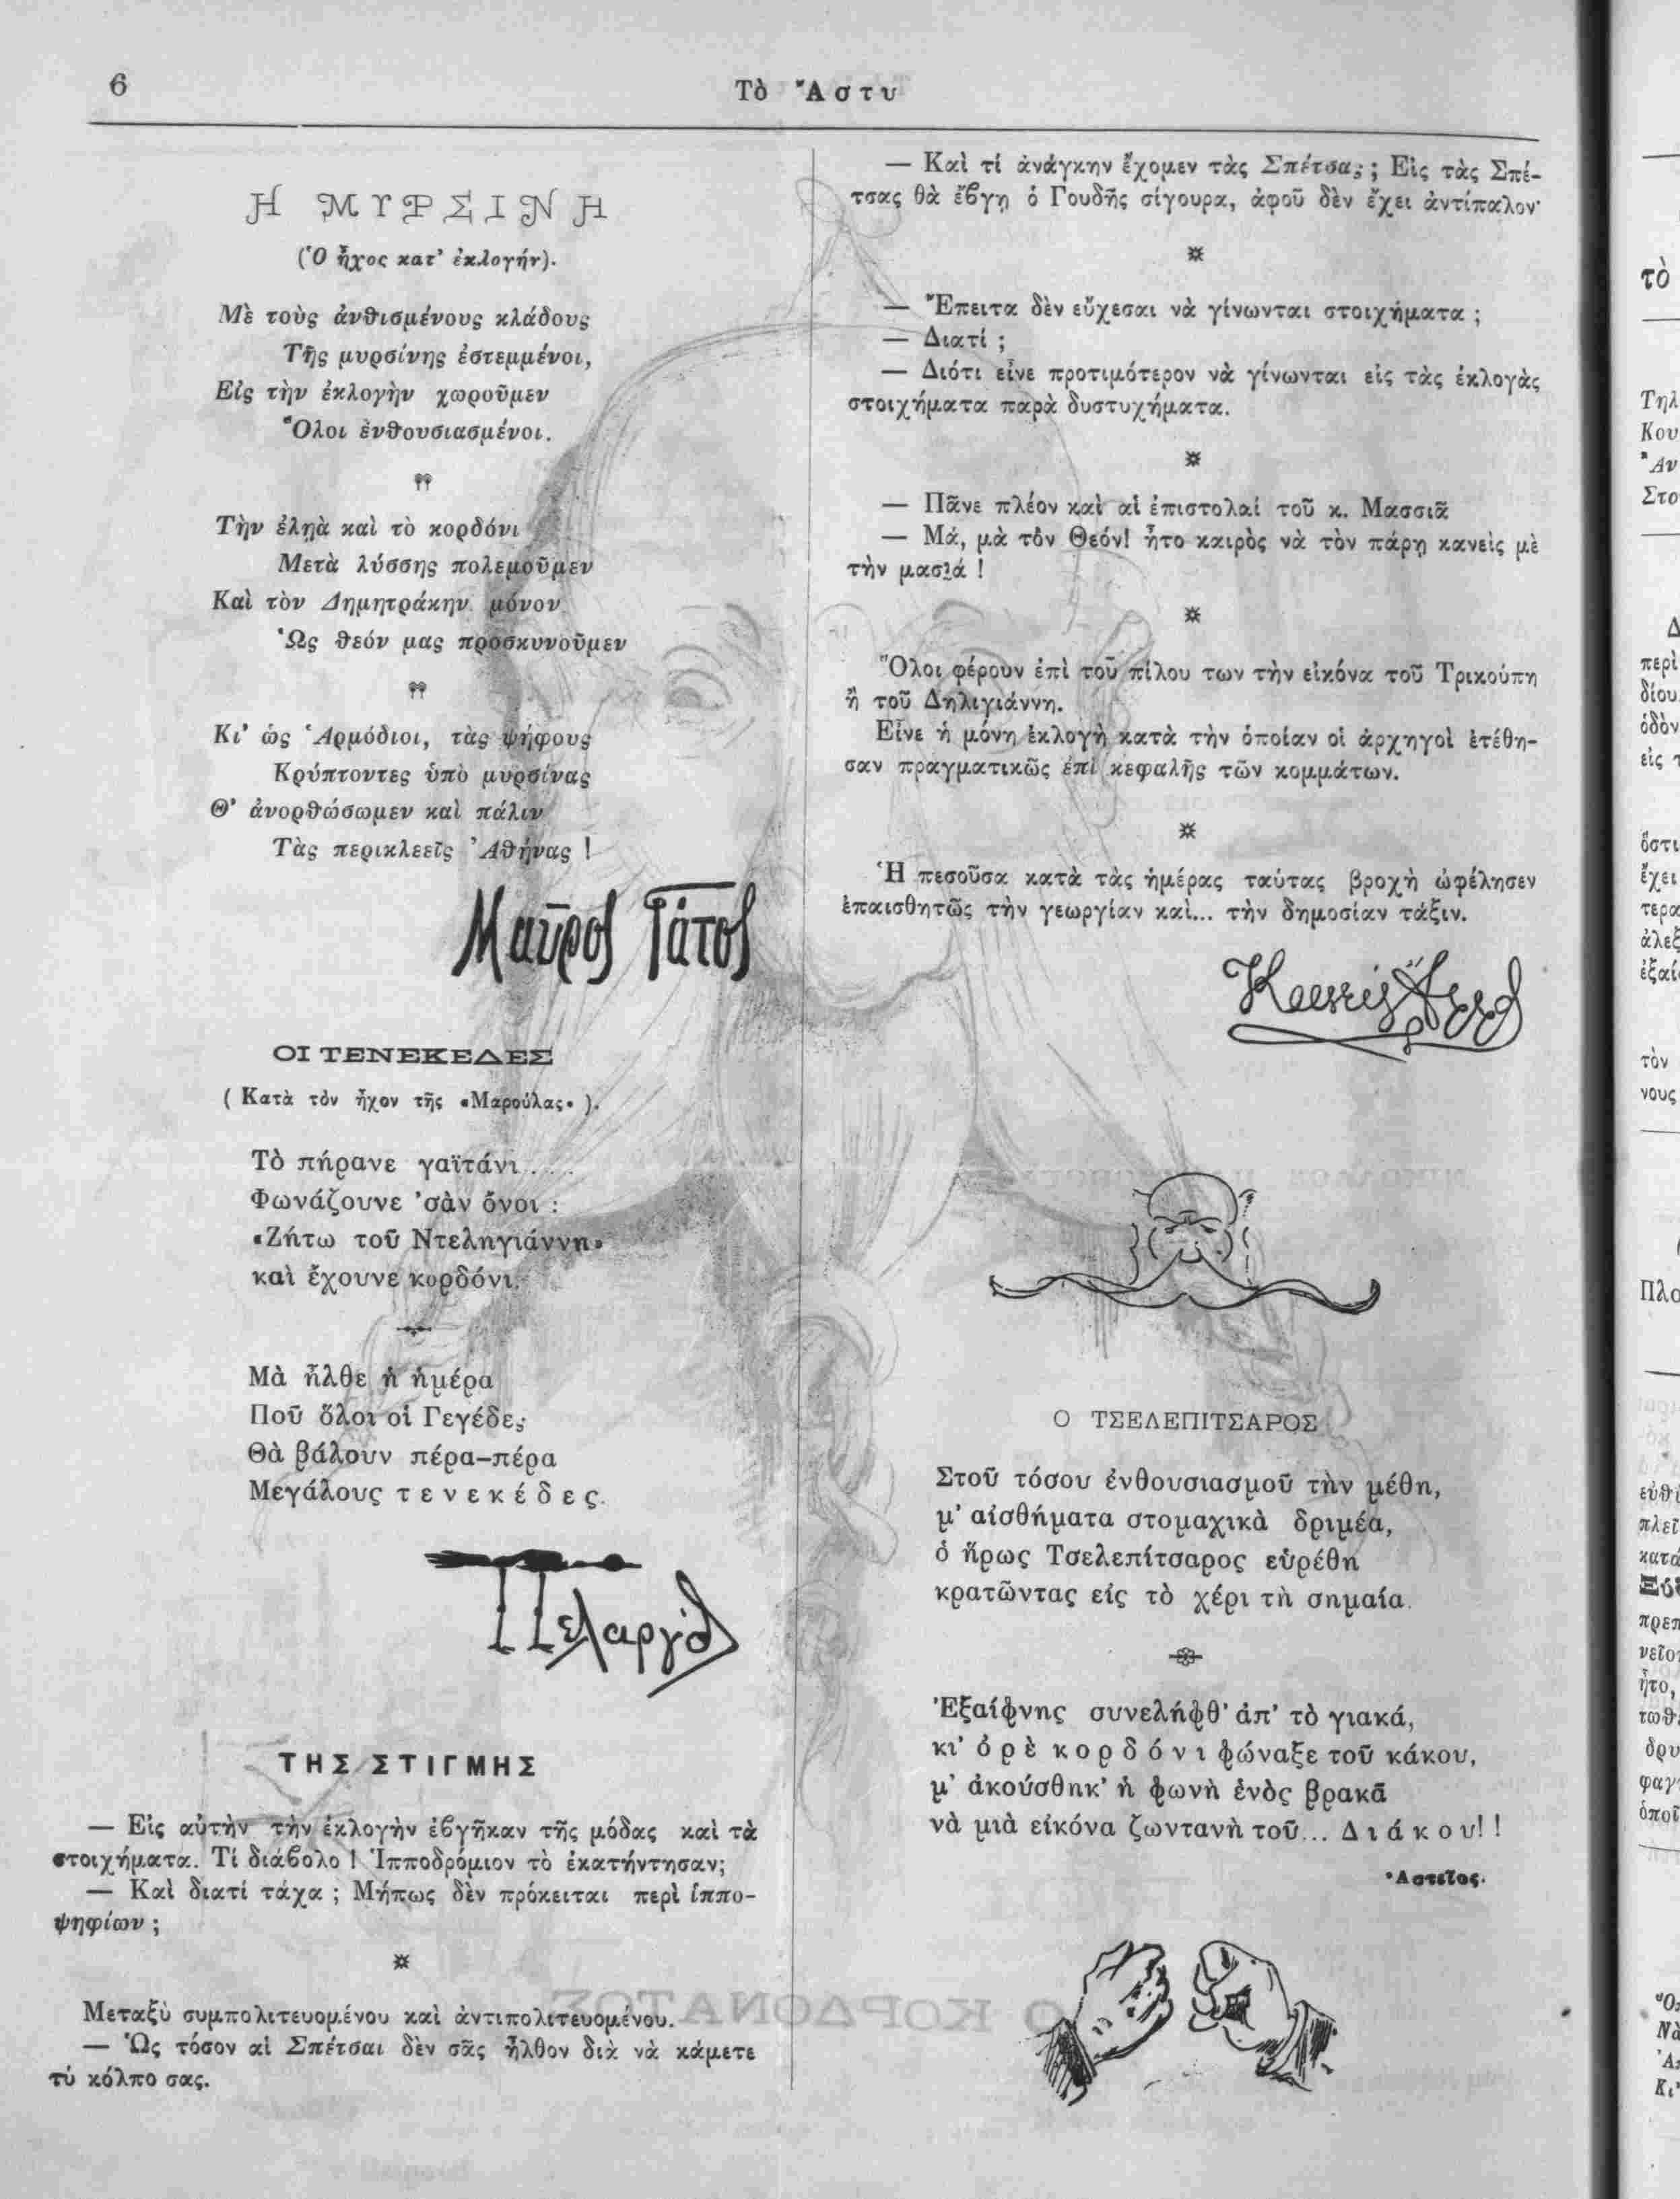 6
Τὸ Ἄστυ
Η ΜΥΡΣΙΝΗ
(Ὁ ἦχος κατ' ἐκλογήν).
Μὲ τοὺς ἀνθισμένους κλάδους
Τῆς μυρσίνης ἐστεμμένοι,
Εἰς τὴν ἐκλογὴν χωροῦμεν
Ὅλοι ἐνθουσιασμένοι.
Τὴν ἐληὰ καὶ τὸ κορδόνι
Μετὰ λύσσης πολεμοῦμεν
Καὶ τὸν Δημητράκην μόνον
Ὡς θεόν μας προσκυνοῦμεν
Κι' ὡς Ἁρμόδιοι, τὰς ψήφους
Κρύπτοντες ὑπὸ μυρσίνας
Θ' ἀνορθώσωμεν καὶ πάλιν
Τὰς περικλεεῖς Ἀθήνας !
Μαῦρος Γάτος
ΟΙ ΤΕΝΕΚΕΔΕΣ
( Κατὰ τὸν ἦχον τῆς «Μαρούλας» ).
Τὸ πήρανε γαϊτάνι....
Φωνάζουνε 'σὰν ὄνοι :
«Ζήτω τοῦ Ντεληγιάννη»
καὶ ἔχουνε κορδόνι.
Μὰ ἦλθε ἡ ἡμέρα
Ποῦ ὅλοι οἱ Γεγέδες
Θὰ βάλουν πέρα–πέρα
Μεγάλους τενεκέδες.
Πελαργός
ΤΗΣ ΣΤΙΓΜΗΣ
— Εἰς αὐτὴν τὴν ἐκλογὴν ἐβγῆκαν τῆς μόδας καὶ τὰ
στοιχήματα. Τί διάβολο ! Ἱπποδρόμιον τὸ ἐκατήντησαν;
— Καὶ διατί τάχα ; Μήπως δὲν πρόκειται περὶ ἱππο-
ψηφίων ;
Μεταξὺ συμπολιτευομένου καὶ ἀντιπολιτευομένου.
— Ὡς τόσον αἱ Σπέτσαι δὲν σᾶς ἦλθον διὰ νὰ κάμετε
τὸ κόλπο σας.
— Καὶ τί ἀνάγκην ἔχομεν τὰς Σπέτσας ; Εἰς τὰς Σπέ-
τσας θὰ ἔβγῃ ὁ Γουδῆς σίγουρα, ἀφοῦ δὲν ἔχει ἀντίπαλον·
— Ἔπειτα δὲν εὔχεσαι νὰ γίνωνται στοιχήματα ;
— Διατί ;
— Διότι εἶνε προτιμότερον νὰ γίνωνται εἰς τὰς ἐκλογὰς
στοιχήματα παρὰ δυστυχήματα.
— Πᾶνε πλέον καὶ αἱ ἐπιστολαί τοῦ κ. Μασσιᾶ
— Μά, μὰ τὸν Θεόν! ἦτο καιρὸς νὰ τὸν πάρῃ κανεὶς μὲ
τὴν μασιά !
Ὅλοι φέρουν ἐπὶ τοῦ πίλου των τὴν εἰκόνα τοῦ Τρικούπη
ἢ τοῦ Δηλιγιάννη.
Εἶνε ἡ μόνη ἐκλογὴ κατὰ τὴν ὁποίαν οἱ ἀρχηγοὶ ἐτέθη-
σαν πραγματικῶς ἐπὶ κεφαλῆς τῶν κομμάτων.
Ἡ πεσοῦσα κατὰ τὰς ἡμέρας ταύτας βροχὴ ὠφέλησεν
ἐπαισθητῶς τὴν γεωργίαν καὶ... τὴν δημοσίαν τάξιν.
Ο ΤΣΕΛΕΠΙΤΣΑΡΟΣ
Στοῦ τόσου ἐνθουσιασμοῦ τὴν μέθη,
μ' αἰσθήματα στομαχικὰ δριμέα,
ὁ ἥρως Τσελεπίτσαρος εὑρέθη
κρατῶντας εἰς τὸ χέρι τὴ σημαία.
Ἐξαίφνης συνελήφθ' ἀπ' τὸ γιακά,
κι' ὀρὲ κορδόνι φώναξε τοῦ κάκου,
μ' ἀκούσθηκ' ἡ φωνὴ ἑνὸς βρακᾶ
νὰ μιὰ εἰκόνα ζωντανὴ τοῦ... Διάκου!!
Ἀστεῖος.